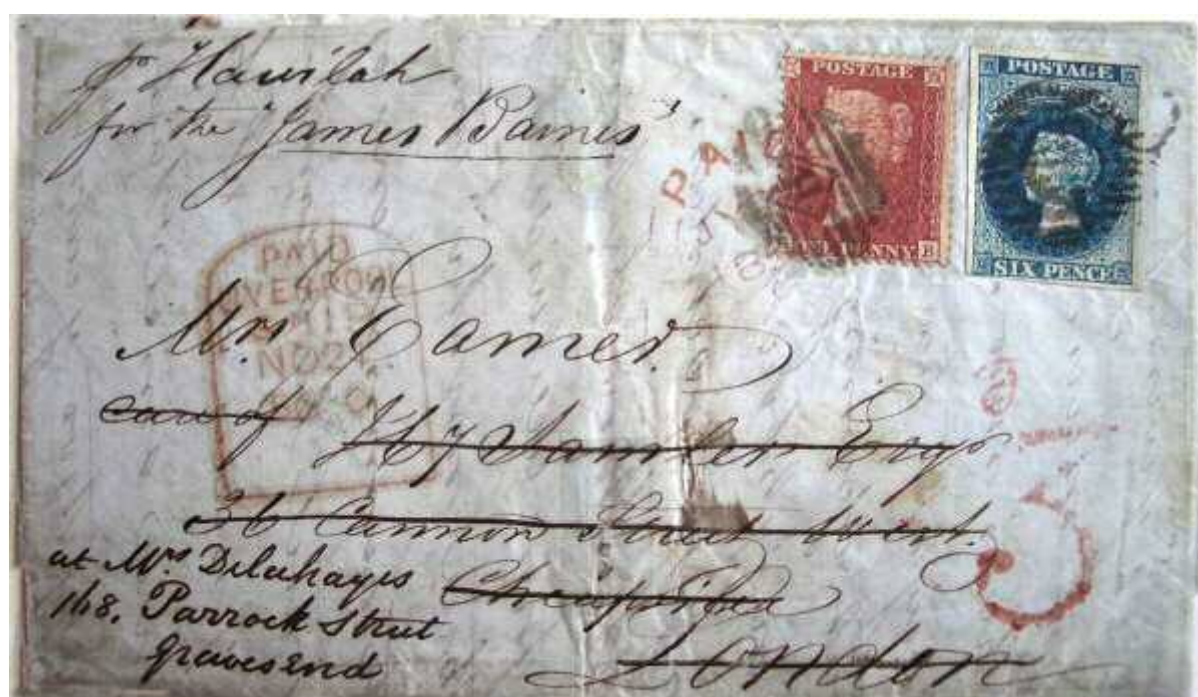 pr Havilah
for the "James Baines"
POSTAGE
POSTAGE
PAID
PENNY
B
SIX PENCE
PAID
LIVERPOOL
NO2
Mrs Eamer
care of Hy Samler Esqr
36 Cannon Street West
Cheapside
London
at Mrs Delahayes
168. Parrock Street
Gravesend